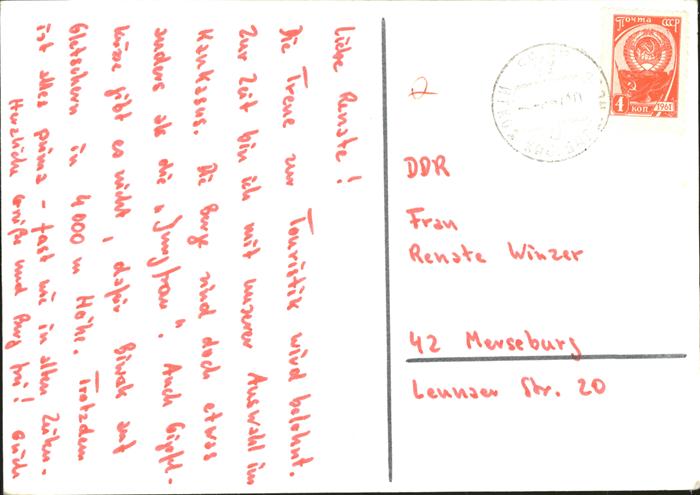 Liebe Renate!
Die Treue zur Touristik wird belohnt.
Zur Zeit bin ich mit unserer Auswahl im
Kaukasus. Die Berge sind doch etwas
anders als die "Jungfrau". Auch Gipfel-
küsse gibt es nicht, dafür Biwak auf
Gletschern in 4000 m Höhe. Trotzdem
ist alles prima - fast wie in alten Zeiten.
Herzliche Grüße und Berg frei!
почта СССР
4 коп
1961
DDR
Frau
Renate Winzer
42 Merseburg
Leunaer Str. 20